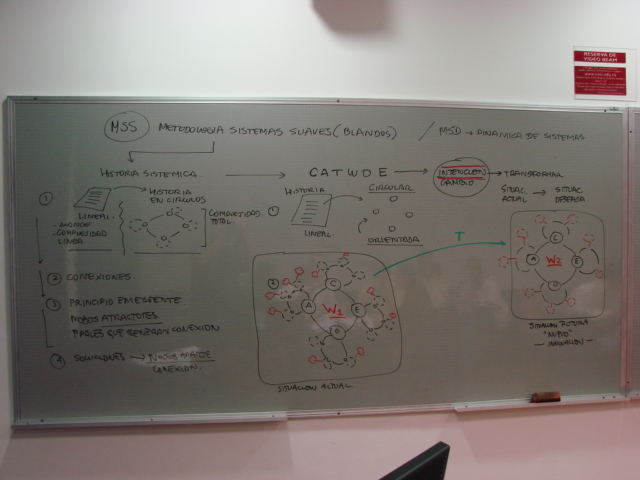 RESERVA DE
VIDEO BEAM
MSS METODOLOGIA SISTEMAS SUAVES (BLANDOS) / MSD → DINAMICA DE SISTEMAS
HISTORIA SISTEMICA → CATWDE → INTENCION CAMBIO → TRANSFORMAR
SITUAC ACTUAL → SITUAC DESEADA
1 LINEAL
HISTORIA
EN CIRCULOS
COMPLEJIDAD
TOTAL
COMPLEJIDAD
LINEAL
1 HISTORIA
LINEAL
CIRCULAR
ORIENTADA
2 CONEXIONES
3 PRINCIPIO EMERGENTE
NODOS ATRACTORES
PPALES QUE GENERAN CONEXION
4 SOLUCIONES → NODOS
CONEXION
T
C
A W1 E
O
SITUACION ACTUAL
C
A W2 E
O
SITUACION FUTURA
"NUEVO"
— INNOVACION —